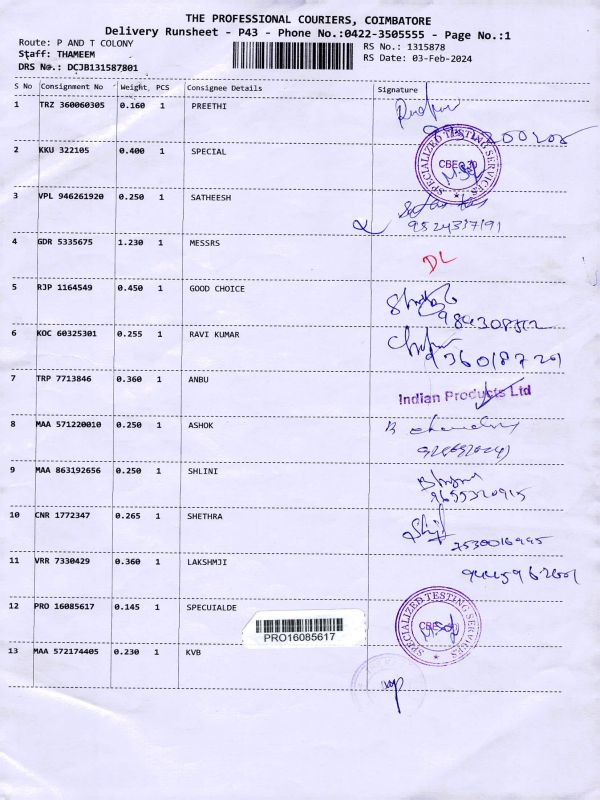 THE PROFESSIONAL COURIERS, COIMBATORE
Delivery Runsheet - P43 - Phone No.:0422-3505555 - Page No.:1
Route: P AND T COLONY
RS No.: 1315878
Staff: THAMEEM
RS Date: 03-Feb-2024
DRS No.: DCJB131587801
S No Consignment No Weight, PCS Consignee Details Signature
1 TRZ 360060305 0.160 1 PREETHI
2 KKU 322105 0.400 1 SPECIAL
SPECIALIZED TESTING SERVICES
3 VPL 946261920 0.250 1 SATHEESH
9524337191
4 GDR 5335675 1.230 1 MESSRS DL
5 RJP 1164549 0.450 1 GOOD CHOICE
6 KOC 60325301 0.255 1 RAVI KUMAR
7 TRP 7713846 0.360 1 ANBU Indian Products Ltd
8 MAA 571220010 0.250 1 ASHOK
9 MAA 863192656 0.250 1 SHLINI
10 CNR 1772347 0.265 1 SHETHRA
11 VRR 7330429 0.360 1 LAKSHMJI
12 PRO 16085617 0.145 1 SPECUIALDE
SPECIALIZED TESTING SERVICES
PRO16085617
13 MAA 572174405 0.230 1 KVB